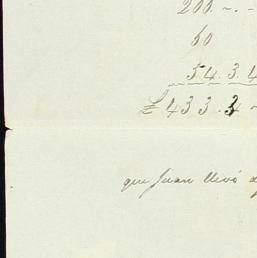 200. ~. -
60
54. 3. 4
£ 433. 3 ~
que Juan llevó